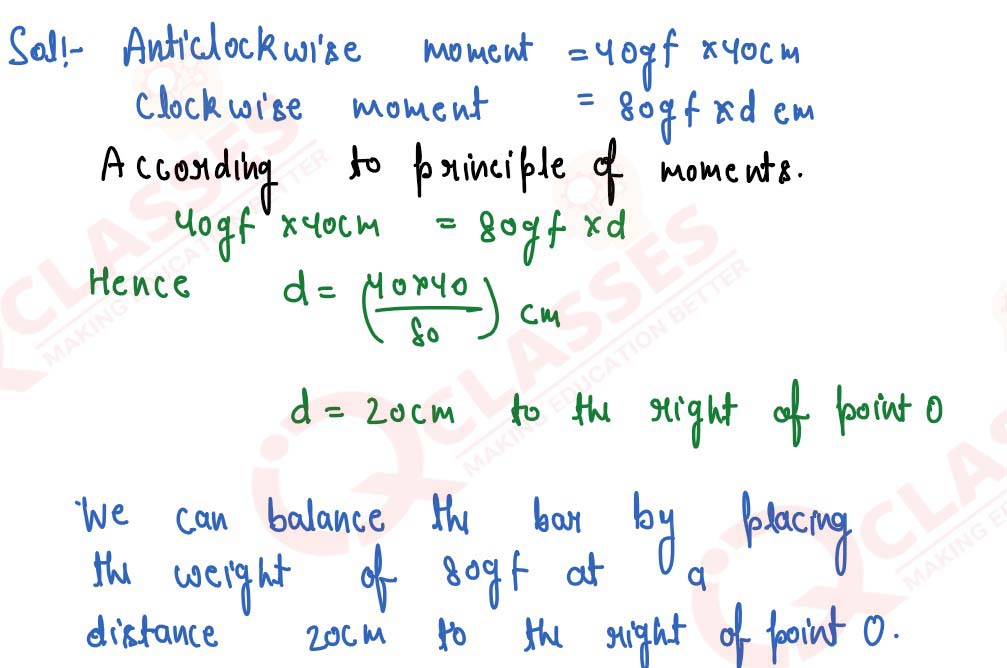 Sol:- Anticlockwise moment = 40gf x 40cm
Clockwise moment = 80gf x d cm
According to principle of moments.
40gf x 40cm = 80gf x d
Hence d = (40x40/80) cm
d = 20cm to the right of point O
We can balance the bar by placing
the weight of 80gf at a
distance 20cm to the right of point O.
CLASSES
MAKING EDUCATION BETTER
CLASSES
MAKING EDUCATION BETTER
CLASSES